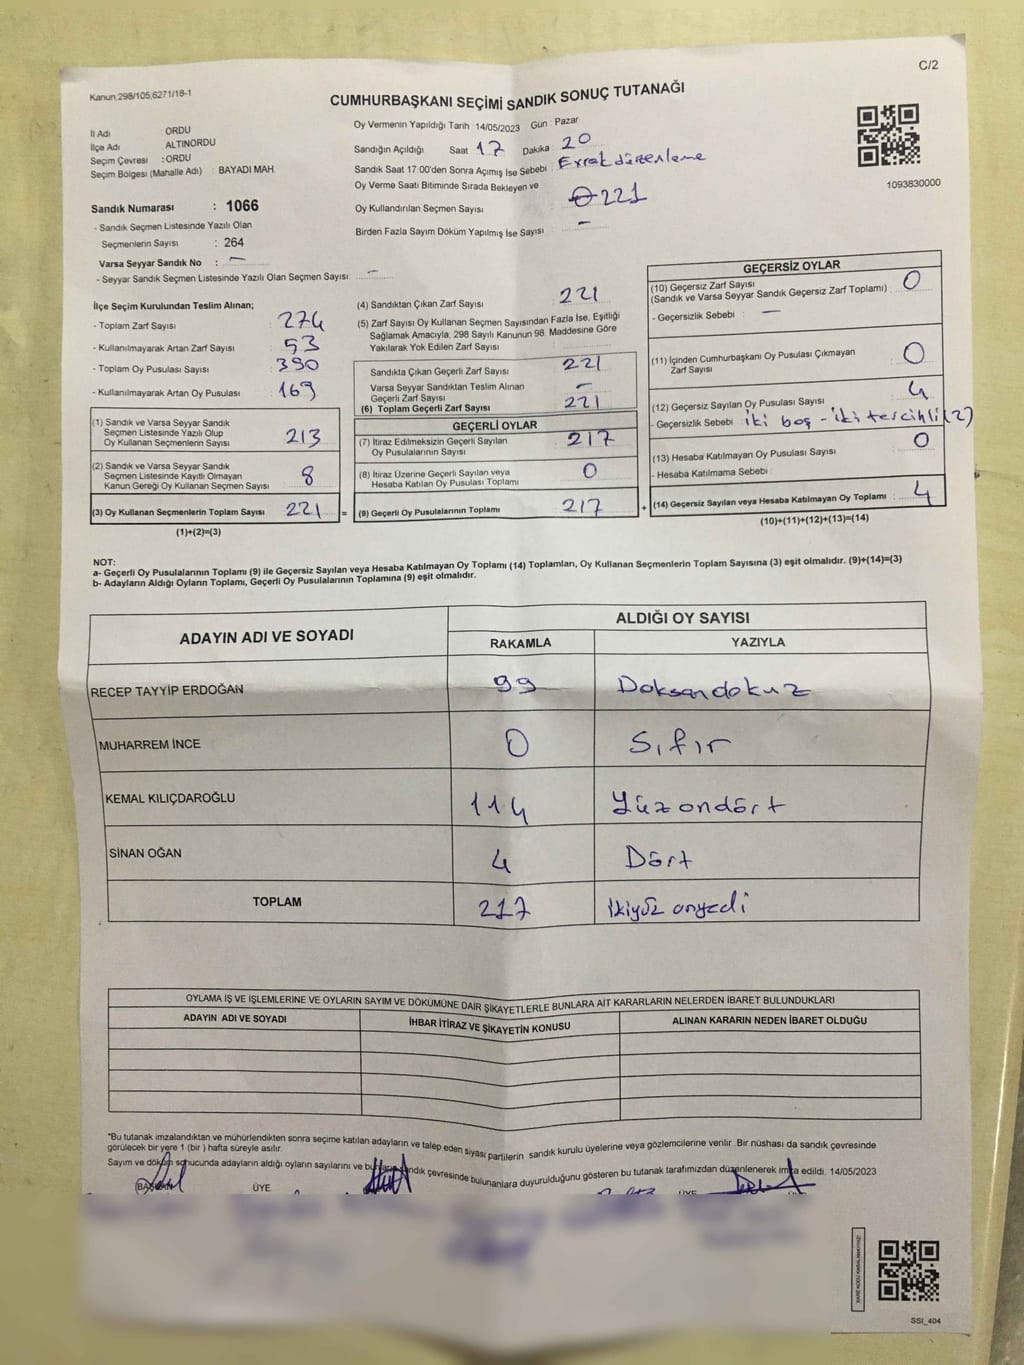 C/2
Kanun:298/105;6271/18-1
CUMHURBAŞKANI SEÇİMİ SANDIK SONUÇ TUTANAĞI
İl Adı ORDU
İlçe Adı ALTINORDU
Seçim Çevresi : ORDU
Seçim Bölgesi (Mahalle Adı) : BAYADI MAH.
Oy Vermenin Yapıldığı Tarih :14/05/2023 Gün : Pazar
Sandığın Açıldığı Saat 17 Dakika 20
Sandık Saat 17:00'den Sonra Açımış İse Sebebi : Evrak düzenleme
Oy Verme Saati Bitiminde Sırada Bekleyen ve
Oy Kullandırılan Seçmen Sayısı 221
Birden Fazla Sayım Döküm Yapılmış İse Sayısı : –
1093830000
Sandık Numarası : 1066
- Sandık Seçmen Listesinde Yazılı Olan
Seçmenlerin Sayısı : 264
Varsa Seyyar Sandık No : –
- Seyyar Sandık Seçmen Listesinde Yazılı Olan Seçmen Sayısı: –
İlçe Seçim Kurulundan Teslim Alınan;
- Toplam Zarf Sayısı : 274
- Kullanılmayarak Artan Zarf Sayısı : 53
- Toplam Oy Pusulası Sayısı : 390
- Kullanılmayarak Artan Oy Pusulası : 169
(1) Sandık ve Varsa Seyyar Sandık
Seçmen Listesinde Yazılı Olup
Oy Kullanan Seçmenlerin Sayısı 213
(2) Sandık ve Varsa Seyyar Sandık
Seçmen Listesinde Kayıtlı Olmayan
Kanun Gereği Oy Kullanan Seçmen Sayısı 8
(3) Oy Kullanan Seçmenlerin Toplam Sayısı 221 =
(1)+(2)=(3)
(4) Sandıktan Çıkan Zarf Sayısı 221
(5) Zarf Sayısı Oy Kullanan Seçmen Sayısından Fazla İse, Eşitliği
Sağlamak Amacıyla, 298 Sayılı Kanunun 98. Maddesine Göre
Yakılarak Yok Edilen Zarf Sayısı
Sandıkta Çıkan Geçerli Zarf Sayısı 221
Varsa Seyyar Sandıktan Teslim Alınan
Geçerli Zarf Sayısı –
(6) Toplam Geçerli Zarf Sayısı 221
GEÇERLİ OYLAR
(7) İtiraz Edilmeksizin Geçerli Sayılan
Oy Pusulalarının Sayısı 217
(8) İtiraz Üzerine Geçerli Sayılan veya
Hesaba Katılan Oy Pusulası Toplamı 0
(9) Geçerli Oy Pusulalarının Toplamı 217 +
GEÇERSİZ OYLAR
(10) Geçersiz Zarf Sayısı
(Sandık ve Varsa Seyyar Sandık Geçersiz Zarf Toplamı) : 0
- Geçersizlik Sebebi : –
(11) İçinden Cumhurbaşkanı Oy Pusulası Çıkmayan
Zarf Sayısı 0
(12) Geçersiz Sayılan Oy Pusulası Sayısı : 4
- Geçersizlik Sebebi iki boş - iki tercihli (2)
(13) Hesaba Katılmayan Oy Pusulası Sayısı 0
- Hesaba Katılmama Sebebi :
(14) Geçersiz Sayılan veya Hesaba Katılmayan Oy Toplamı : 4
(10)+(11)+(12)+(13)=(14)
NOT:
a- Geçerli Oy Pusulalarının Toplamı (9) ile Geçersiz Sayılan veya Hesaba Katılmayan Oy Toplamı (14) Toplamları, Oy Kullanan Seçmenlerin Toplam Sayısına (3) eşit olmalıdır. (9)+(14)=(3)
b- Adayların Aldığı Oyların Toplamı, Geçerli Oy Pusulalarının Toplamına (9) eşit olmalıdır.
ADAYIN ADI VE SOYADI ALDIĞI OY SAYISI
RAKAMLA YAZIYLA
RECEP TAYYİP ERDOĞAN 99 Doksandokuz
MUHARREM İNCE 0 Sıfır
KEMAL KILIÇDAROĞLU 114 Yüzondört
SİNAN OĞAN 4 Dört
TOPLAM 217 ikiyüz onyedi
OYLAMA İŞ VE İŞLEMLERİNE VE OYLARIN SAYIM VE DÖKÜMÜNE DAİR ŞİKAYETLERLE BUNLARA AİT KARARLARIN NELERDEN İBARET BULUNDUKLARI
ADAYIN ADI VE SOYADI İHBAR İTİRAZ VE ŞİKAYETİN KONUSU ALINAN KARARIN NEDEN İBARET OLDUĞU
"Bu tutanak imzalandıktan ve mühürlendikten sonra seçime katılan adayların ve talep eden siyasi partilerin sandık kurulu üyelerine veya gözlemcilerine verilir. Bir nüshası da sandık çevresinde
görülecek bir yere 1 (bir ) hafta süreyle asılır.
Sayım ve döküm sonucunda adayların aldığı oyların sayılarını ve bunların sandık çevresinde bulunanlara duyurulduğunu gösteren bu tutanak tarafımızdan düzenlenerek imza edildi. 14/05/2023
BAŞKAN ÜYE ÜYE
SSI_404